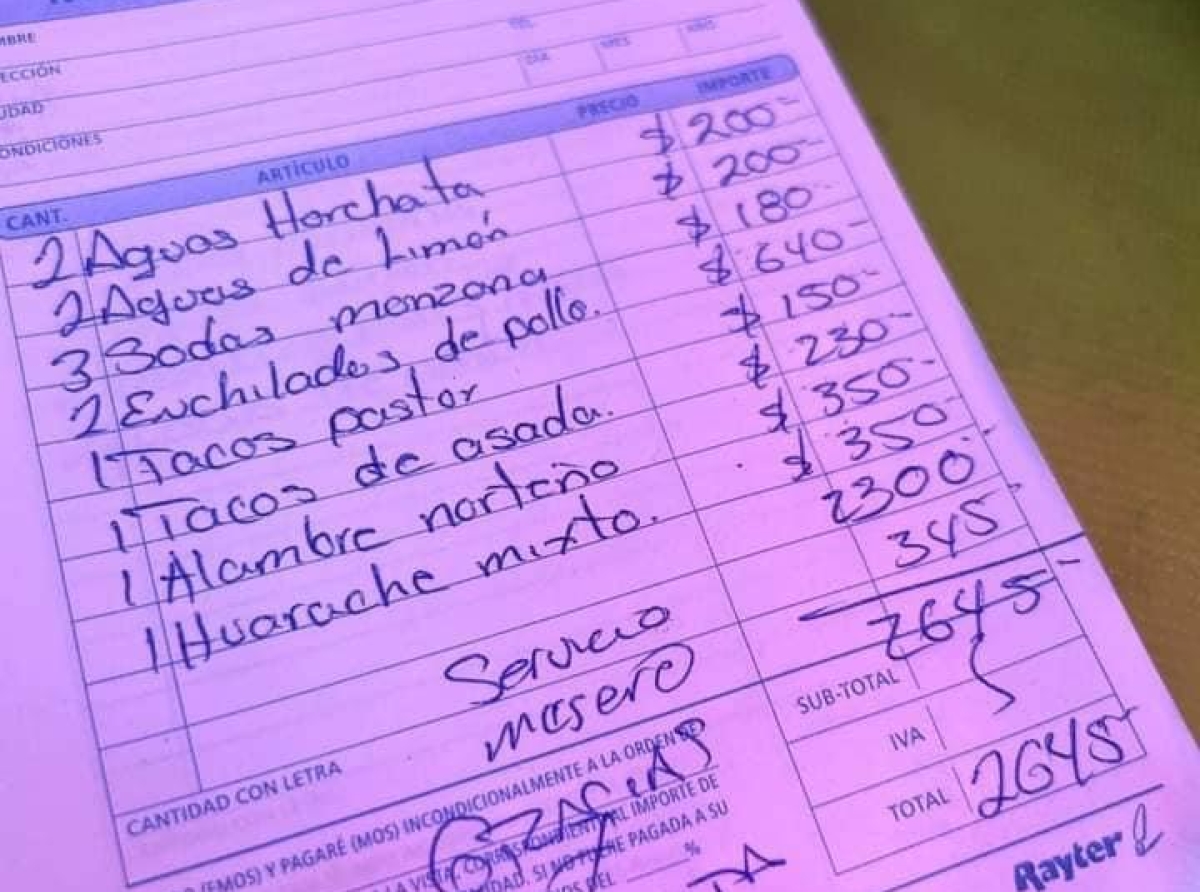 MBRE
ECCIÓN
TEL.
UDAD
DIA MES AÑO
ONDICIONES
CANT. ARTÍCULO PRECIO IMPORTE
2 Aguas Horchata $ 200-
2 Aguas de Limón $ 200-
3 Sodas manzana $ 180-
2 Enchiladas de pollo. $ 640-
1 Tacos pastor $ 150-
1 Tacos de asada. $ 230-
1 Alambre norteño $ 350-
1 Huarache mixto. $ 350-
2300-
Servicio 345-
mesero 2645-
SUB-TOTAL
IVA
TOTAL 2645-
CANTIDAD CON LETRA
(EMOS) Y PAGARÉ (MOS) INCONDICIONALMENTE A LA ORDEN DE
LA VISTA, CORRESPONDIENTE AL IMPORTE DE
SI NO FUERE PAGADA A SU
%
GRACIAS
Rayter